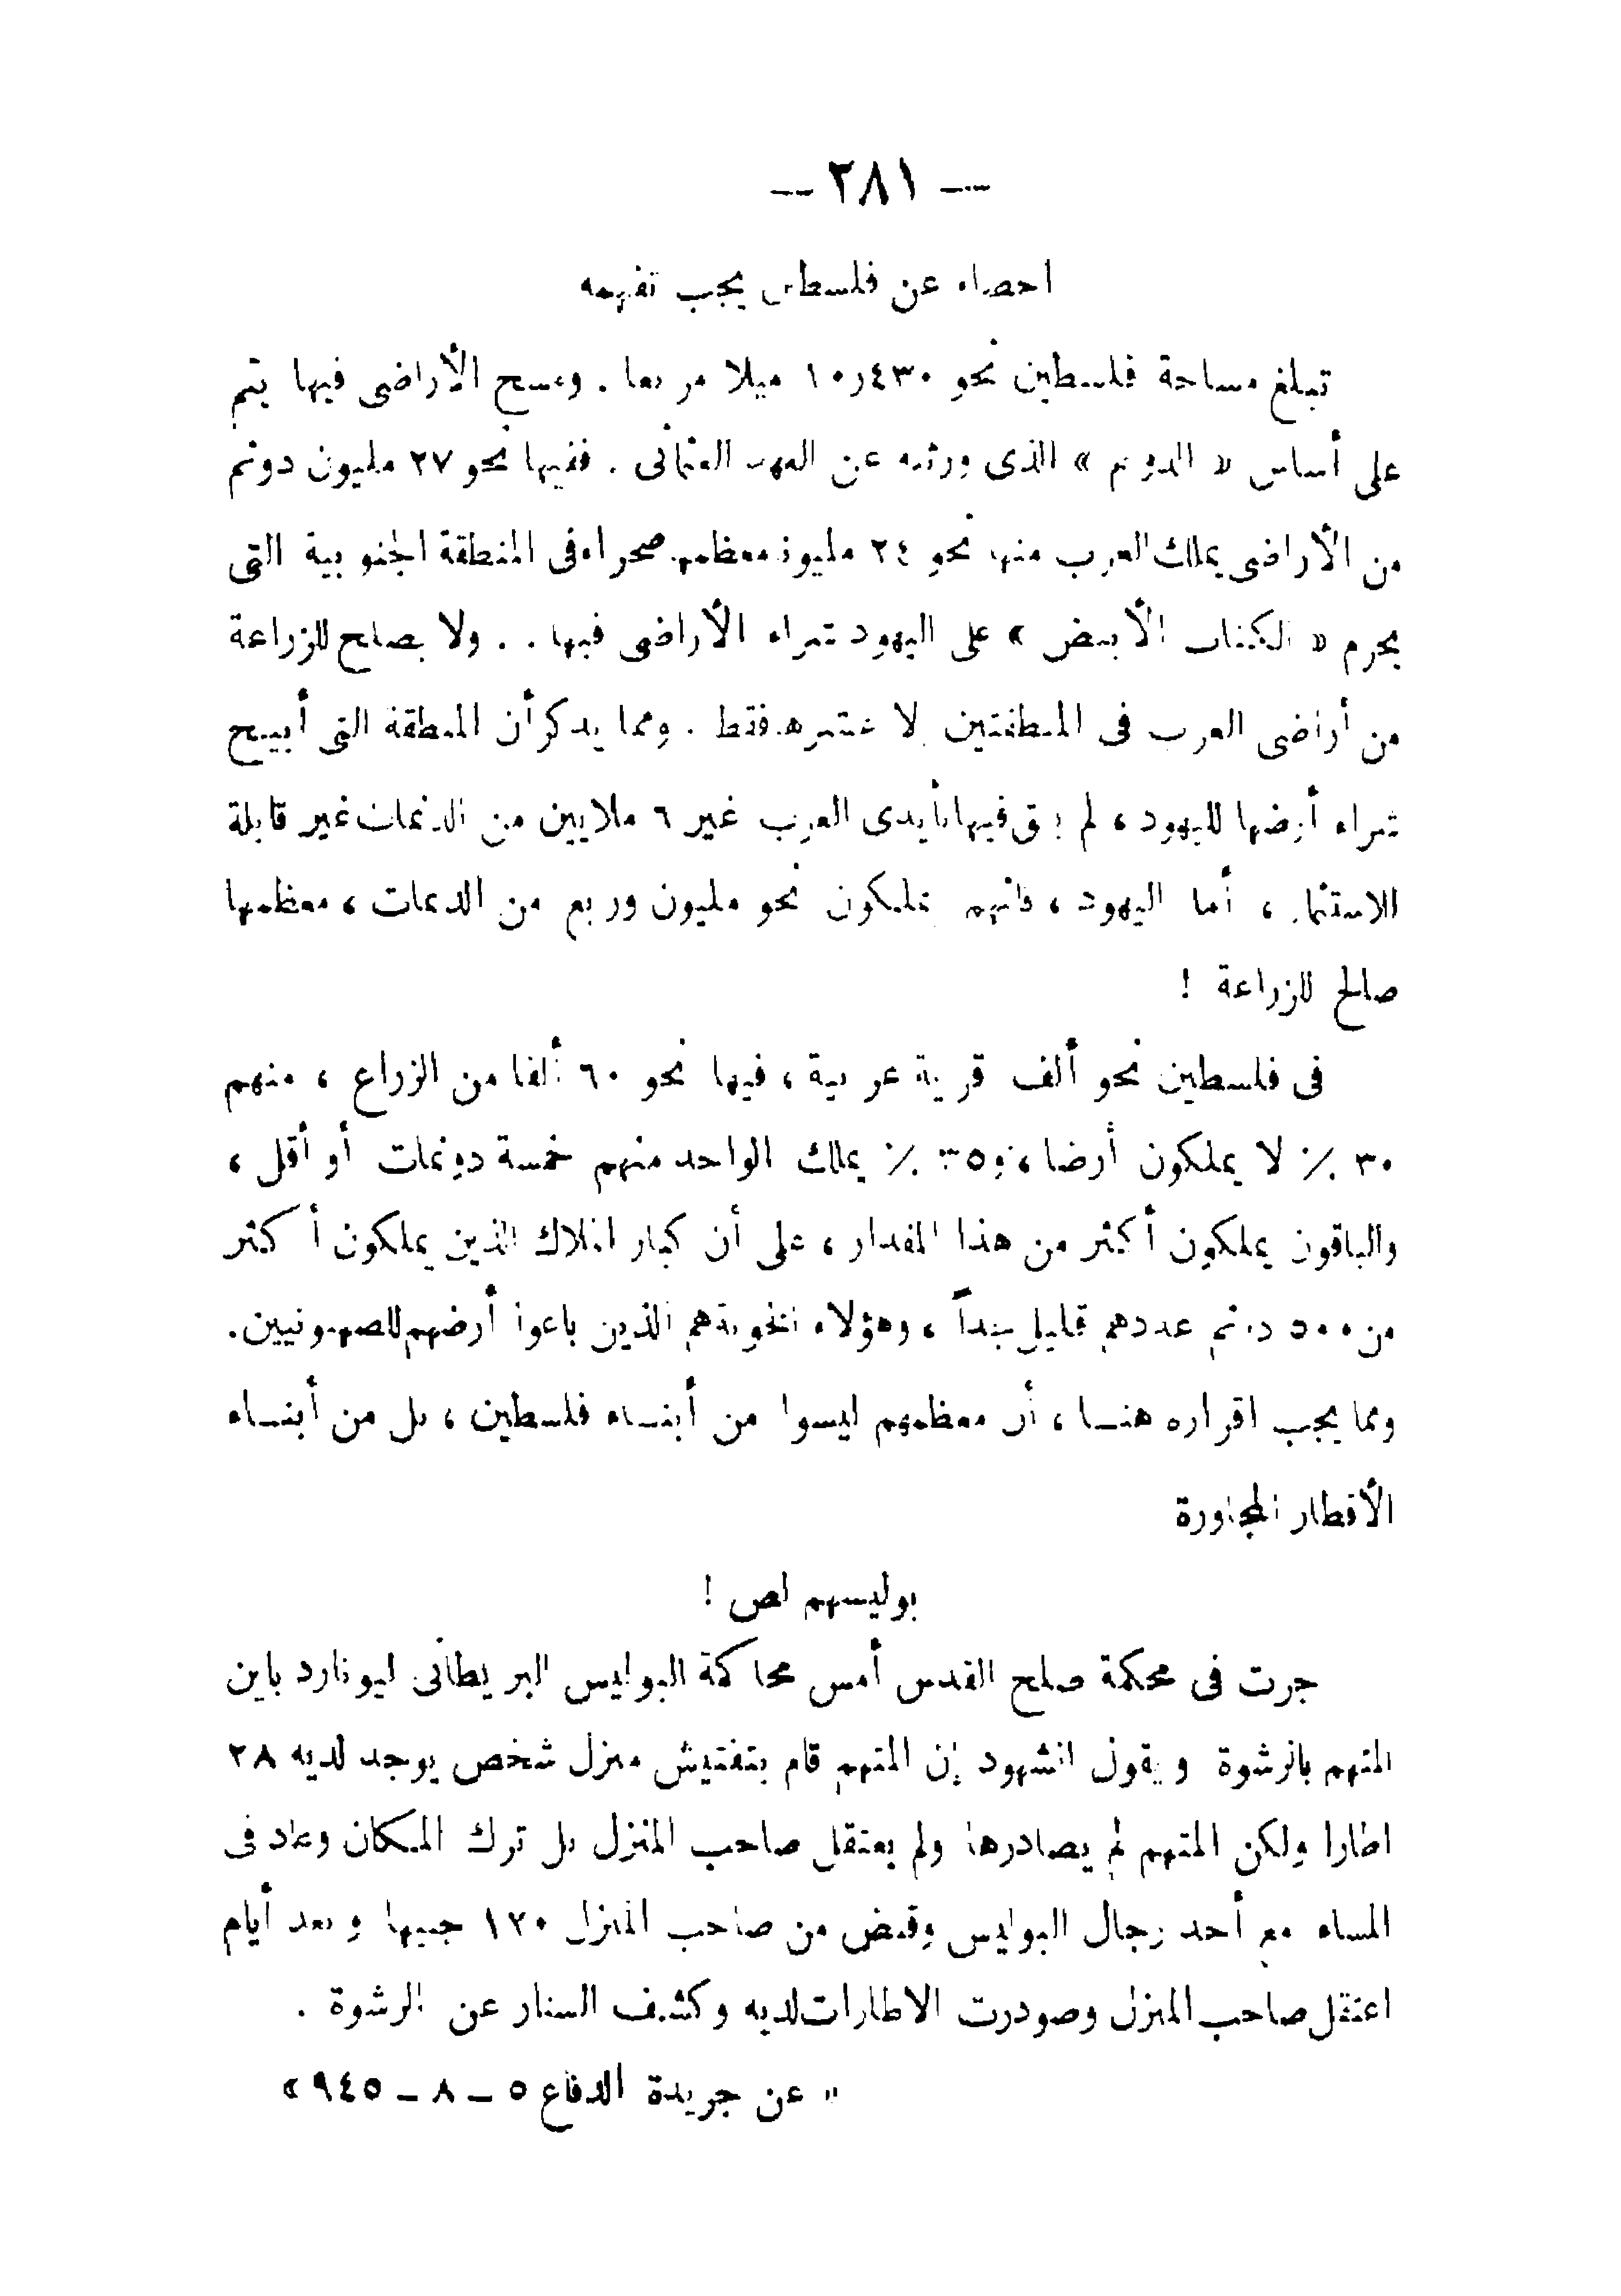 — ٢٨١ —
احصاء عن فلسطين يجب تفهمه
تبلغ مساحة فلسطين نحو ١٠٫٤٣٠ ميلا مربعا . ومسح الأراضى فيها يتم
على أساس « الدونم » الذى ورثته عن العهد العثمانى . ففيها نحو ٢٧ مليون دونم
من الأراضى يملك العرب منها نحو ٢٤ مليونا معظمها صحراء فى المنطقة الجنوبية التى
يحرم « الكتاب الأبيض » على اليهود شراء الأراضى فيها . . ولا يصلح للزراعة
من أراضى العرب فى المنطقتين إلا عشرها فقط . ومما يذكر أن المنطقة التى أبيح
شراء أرضها لليهود ، لم يبق فيها بأيدى العرب غير ٦ ملايين من الدنمات غير قابلة
للاستثمار ، أما اليهود ، فانهم يملكون نحو مليون وربع من الدنمات ، معظمها
صالح للزراعة !
فى فلسطين نحو ألف قرية عربية ، فيها نحو ٦٠ ألفا من الزراع ، منهم
٣٠ ٪ لا يملكون أرضا ، و٣٥ ٪ يملك الواحد منهم خمسة دونمات أو أقل ،
والباقون يملكون أكثر من هذا المقدار ، على أن كبار الملاك الذين يملكون أكثر
من ٥٠٠ دونم عددهم قليل جداً ، وهؤلاء الخونة هم الذين باعوا أرضهم للصهيونيين.
ومما يجب اقراره هنـا ، أن معظمهم ليسوا من أبنـاء فلسطين ، بل من أبنـاء
الأقطار المجاورة
بوليسهم لص !
جرت فى محكمة صلح القدس أمس محاكمة البوليس البريطانى ليونارد باين
المتهم بالرشوة ويقول الشهود إن المتهم قام بتفتيش منزل شخص يوجد لديه ٢٨
اطارا ولكن المتهم لم يصادرها ولم يعتقل صاحب المنزل بل ترك المكان وعاد فى
المساء مع أحد رجال البوليس وقبض من صاحب المنزل ١٢٠ جنيها وبعد أيام
اعتقل صاحب المنزل وصودرت الاطارات لديه وكشف الستار عن الرشوة .
« عن جريدة الدفاع ٥ – ٨ – ٩٤٥ »